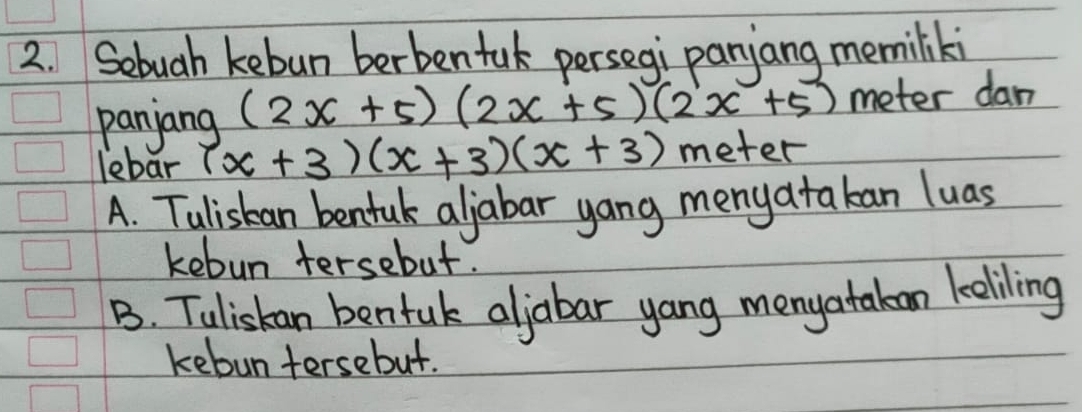 2. Sebuah kebun berbentuk persegi panjang memiliki
panjang (2x + 5) (2x + 5)(2x + 5) meter dan
lebar (x + 3)(x + 3)(x + 3) meter
A. Tuliskan bentuk aljabar yang menyatakan luas
kebun tersebut.
B. Tuliskan bentuk aljabar yang menyatakan keliling
kebun tersebut.